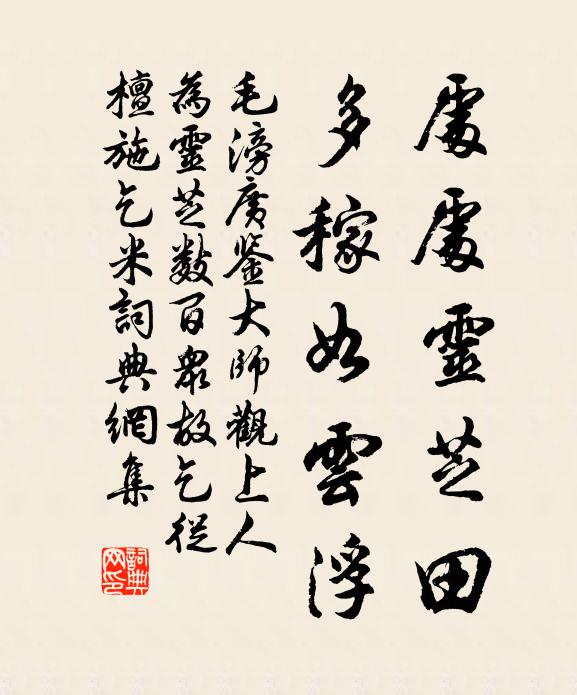 處處靈芝田
多稼如雲浮
毛滂廣鉴大師觀上人
為靈芝數百眾故乞從
檀施乞米詞典網集
詞典网印